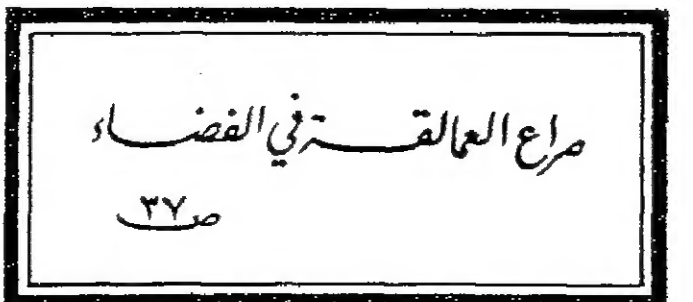 صراع العمالقة في الفضاء
ص ٣٧